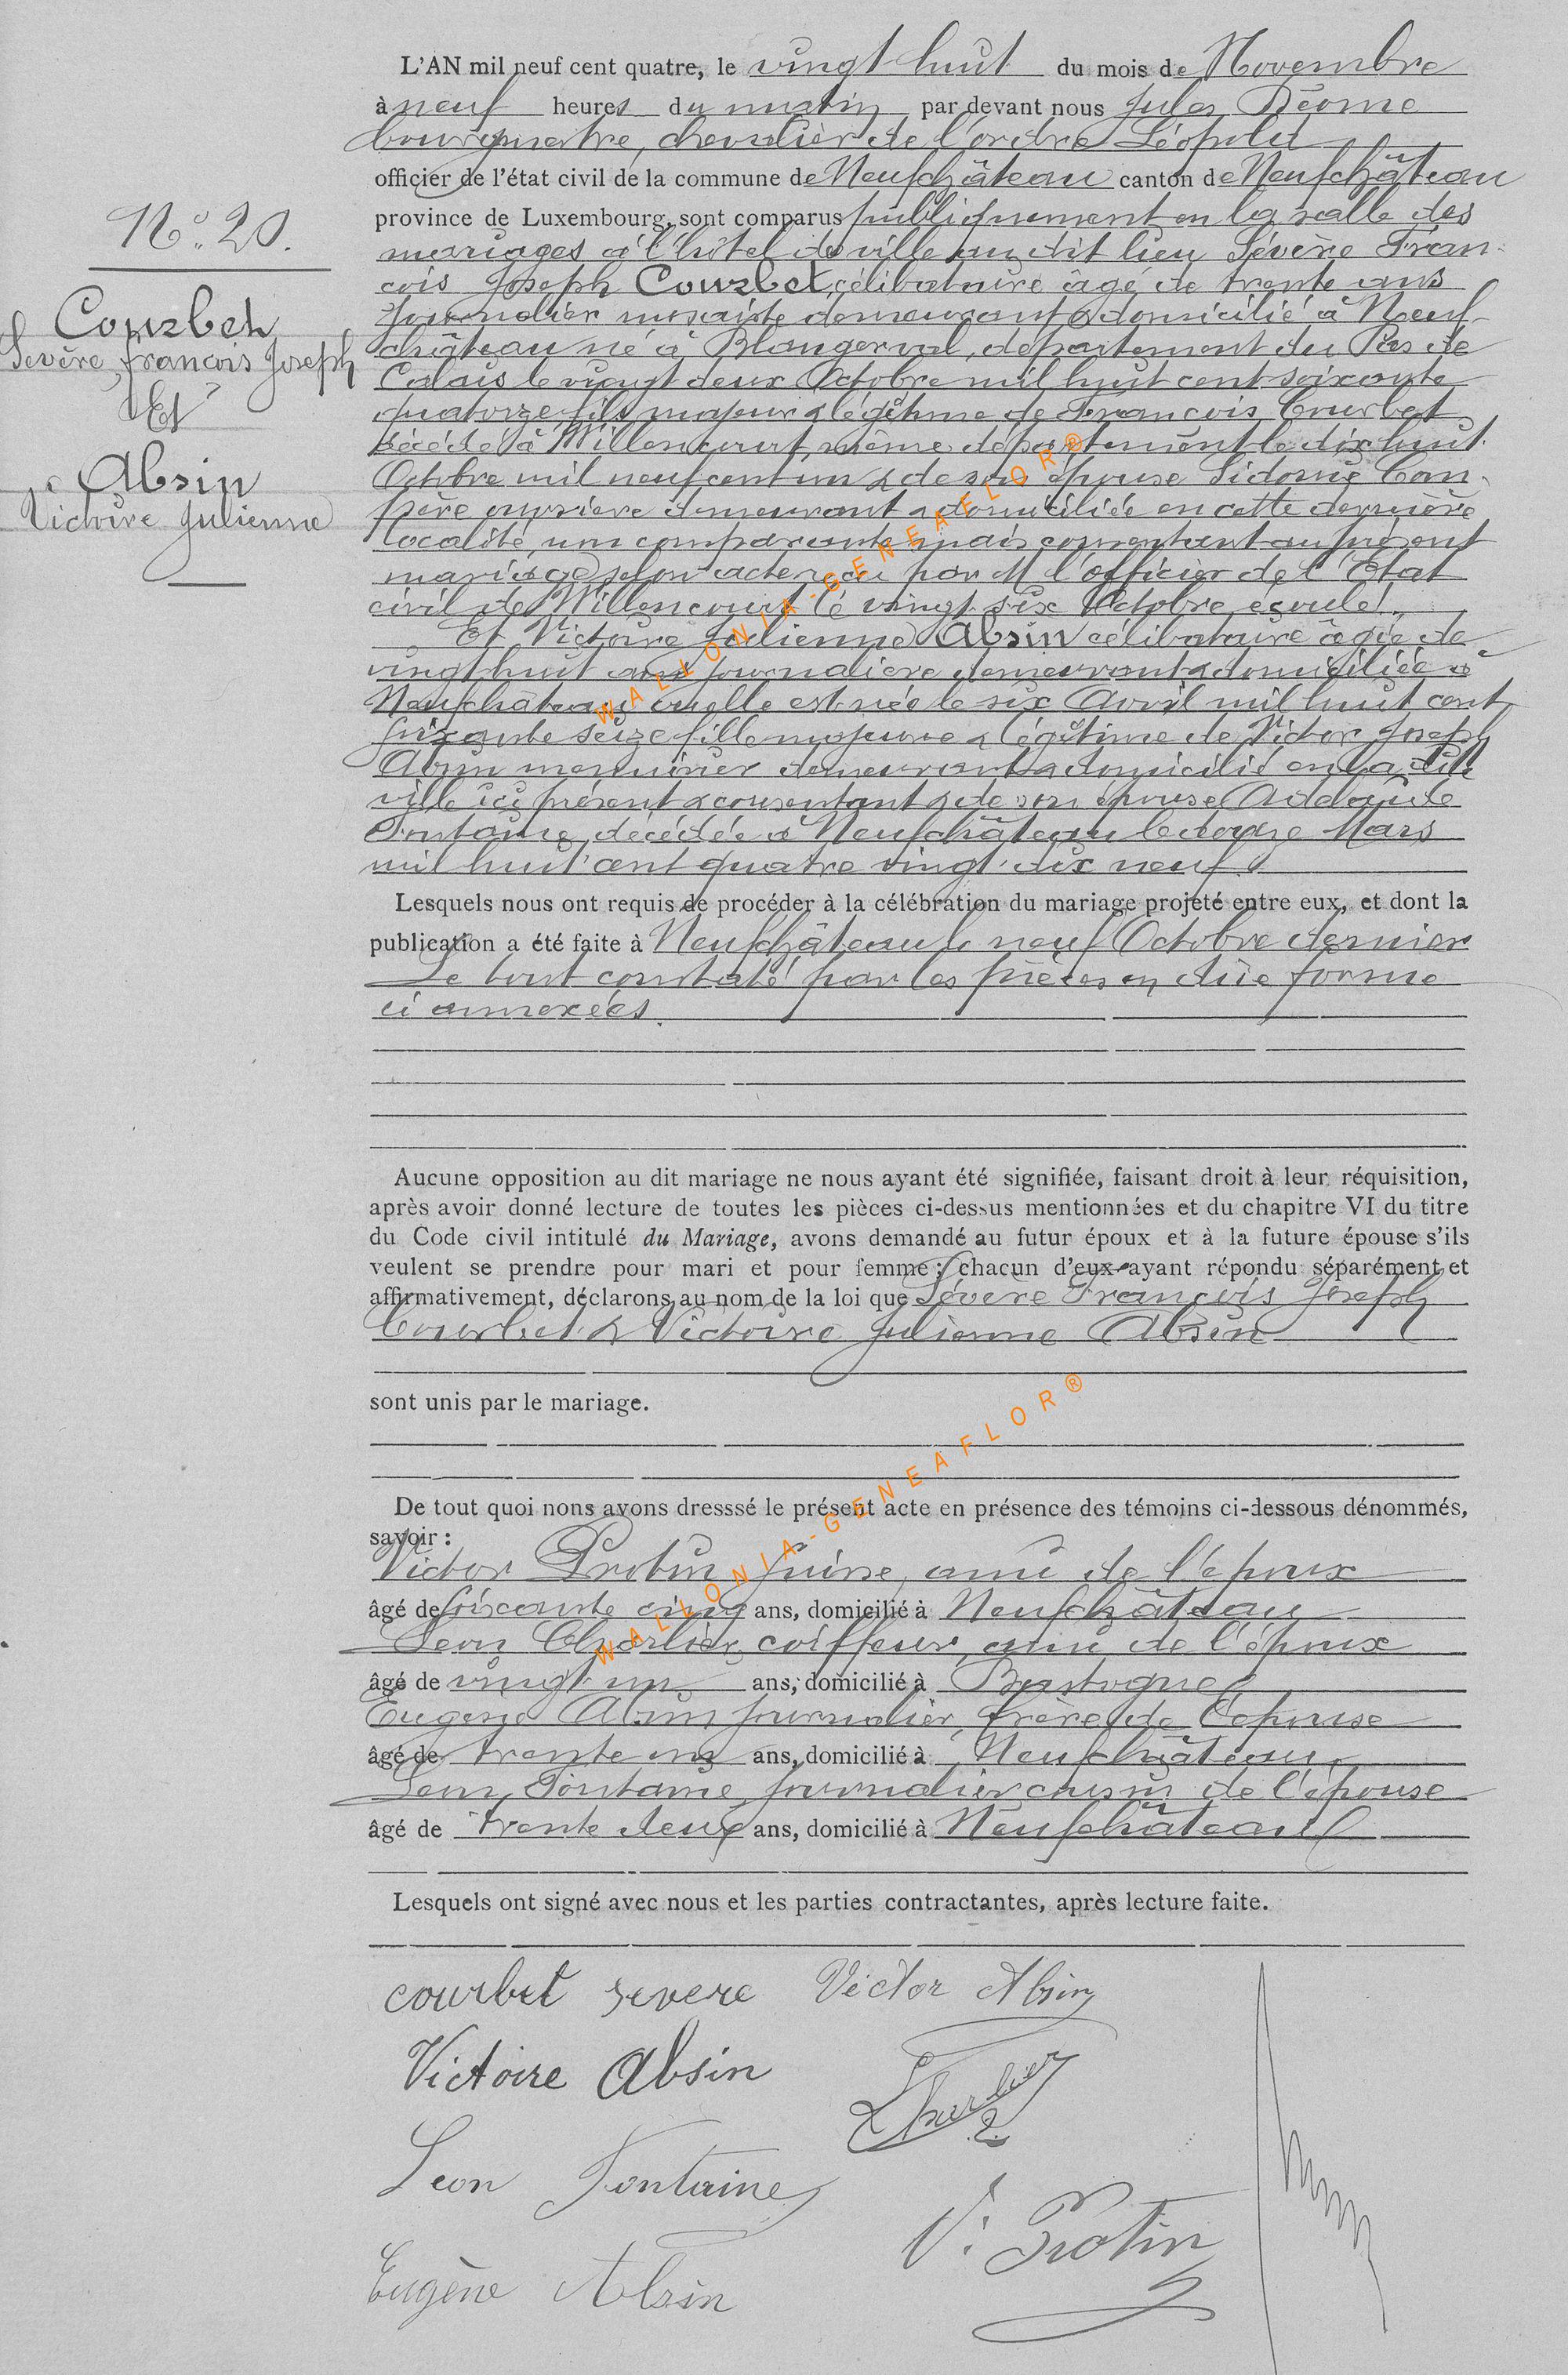 L'AN mil neuf cent quatre, le vingt huit du mois de Novembre
à neuf heures du matin par devant nous Jules
bourgmestre, chevalier de l'ordre Léopold
officier de l'état civil de la commune de Neufchâteau canton de Neufchâteau
province de Luxembourg, sont comparus publiquement en la salle des
mariages à l'hôtel de ville au dit lieu Sévère Fran-
çois Joseph Courbet, célibataire âgé de trente ans
journalier demeurant & domicilié à Neuf-
château né à Blangerval, département du Pas de
Calais le vingt deux Octobre mil huit cent soixante
quatorze fils majeur & légitime de François Courbet
décédé à Willencourt, même département le dix huit
Octobre mil neuf cent un & de son épouse Sidonie Com-
père ouvrière demeurant & domiciliée en cette dernière
localité, non comparante mais consentant au présent
mariage selon acte reçu par M l'officier de l'Etat
civil de Willencourt le vingt six Octobre écoulé.
Et Victoire Julienne Absin célibataire âgée de
vingt huit ans journalière demeurant & domiciliée à
Neufchâteau où elle est née le six Avril mil huit cent
soixante seize fille majeure & légitime de Victor Joseph
Absin menuisier demeurant & domicilié en la dite
ville ici présent & consentant & de son épouse Adélaïde
Fontaine, décédée à Neufchâteau le douze Mars
mil huit cent quatre vingt dix neuf.
Lesquels nous ont requis de procéder à la célébration du mariage projeté entre eux, et dont la
publication a été faite à Neufchâteau le neuf Octobre dernier
Le tout constaté par les pièces en due forme
ci annexées.
N°. 20.
Courbet
Sévère, françois Joseph
Et
Absin
Victoire Julienne
Aucune opposition au dit mariage ne nous ayant été signifiée, faisant droit à leur réquisition,
après avoir donné lecture de toutes les pièces ci-dessus mentionnées et du chapitre VI du titre
du Code civil intitulé du Mariage, avons demandé au futur époux et à la future épouse s'ils
veulent se prendre pour mari et pour femme; chacun d'eux ayant répondu séparément et
affirmativement, déclarons au nom de la loi que Sévère François Joseph
Courbet & Victoire Julienne Absin
sont unis par le mariage.
De tout quoi nons avons dresssé le présent acte en présence des témoins ci-dessous dénommés,
savoir :
Victor Protin, ami de l'époux
âgé de soixante cinq ans, domicilié à Neufchâteau
Léon Charlier, coiffeur, ami de l'époux
âgé de vingt un ans, domicilié à Bastogne
Eugène Absin journalier, frère de l'épouse
âgé de trente un ans, domicilié à Neufchâteau,
Léon Fontaine, journalier cousin de l'épouse
âgé de trente deux ans, domicilié à Neufchâteau
Lesquels ont signé avec nous et les parties contractantes, après lecture faite.
courbet severe Victor Absin
Victoire Absin
Charlier
Leon Fontaine
V. Protin
Eugène Absin
WALLONIA-GENEAFLOR®
WALLONIA-GENEAFLOR®